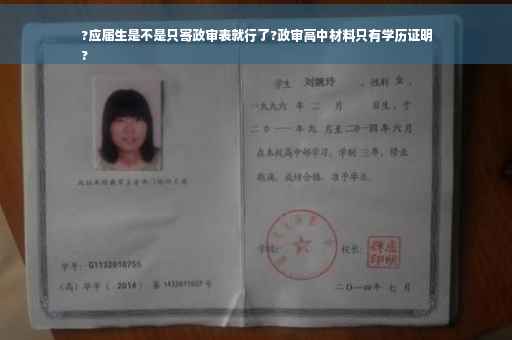 ?应届生是不是只寄政审表就行了?政审高中材料只有学历证明
?
学生 刘婉玲 ,性别 女 ,
一九九六 年 二 月 日生,于
二〇一一年九 月至二〇一四年六月
在本校高中部学习,学制 三年,修业
期满,成绩合格,准予毕业。
学号: G1132010755
学校: 校长:
(高)毕字( 2014 )第 1432011027 号
二〇一四年 七 月